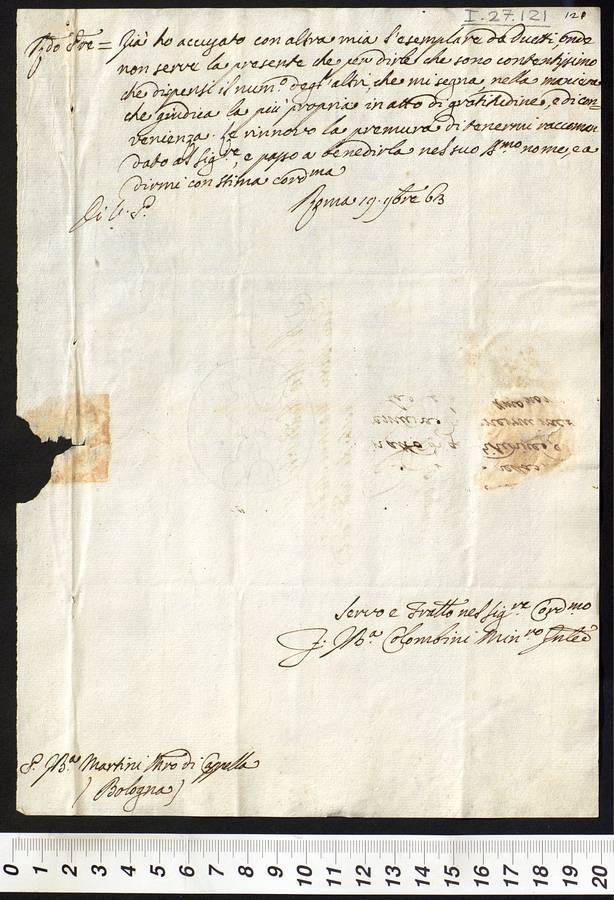 I.27.121 121
Già ho accusato con altra mia l'esemplare da Duetti, onde
non serve la presente che per dirle che sono contentissimo
che dispensi il num.o degl'altri, che mi segna nella maniera
che giudica la più propria in atto di gratitudine, e di con-
venienza. Le rinnovo la premura di tenermi raccoman-
dato al Sig.re, e passo a benedirla nel suo S.mo nome, e a
dirmi con stima cord.ma
Di V. P.
Roma 19. 9bre 63
Servo e Fratto nel Sig.re Cord.mo
F. Gio: B.a Colombini Min.ro
P. Gio: B.a Martini Mro di Cappella
(Bologna)
0 1 2 3 4 5 6 7 8 9 10 11 12 13 14 15 16 17 18 19 20